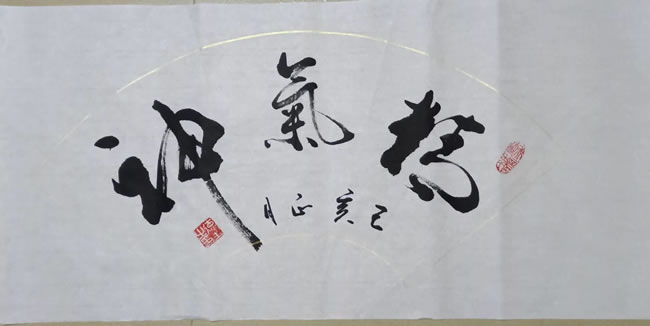 精氣神
己亥正月